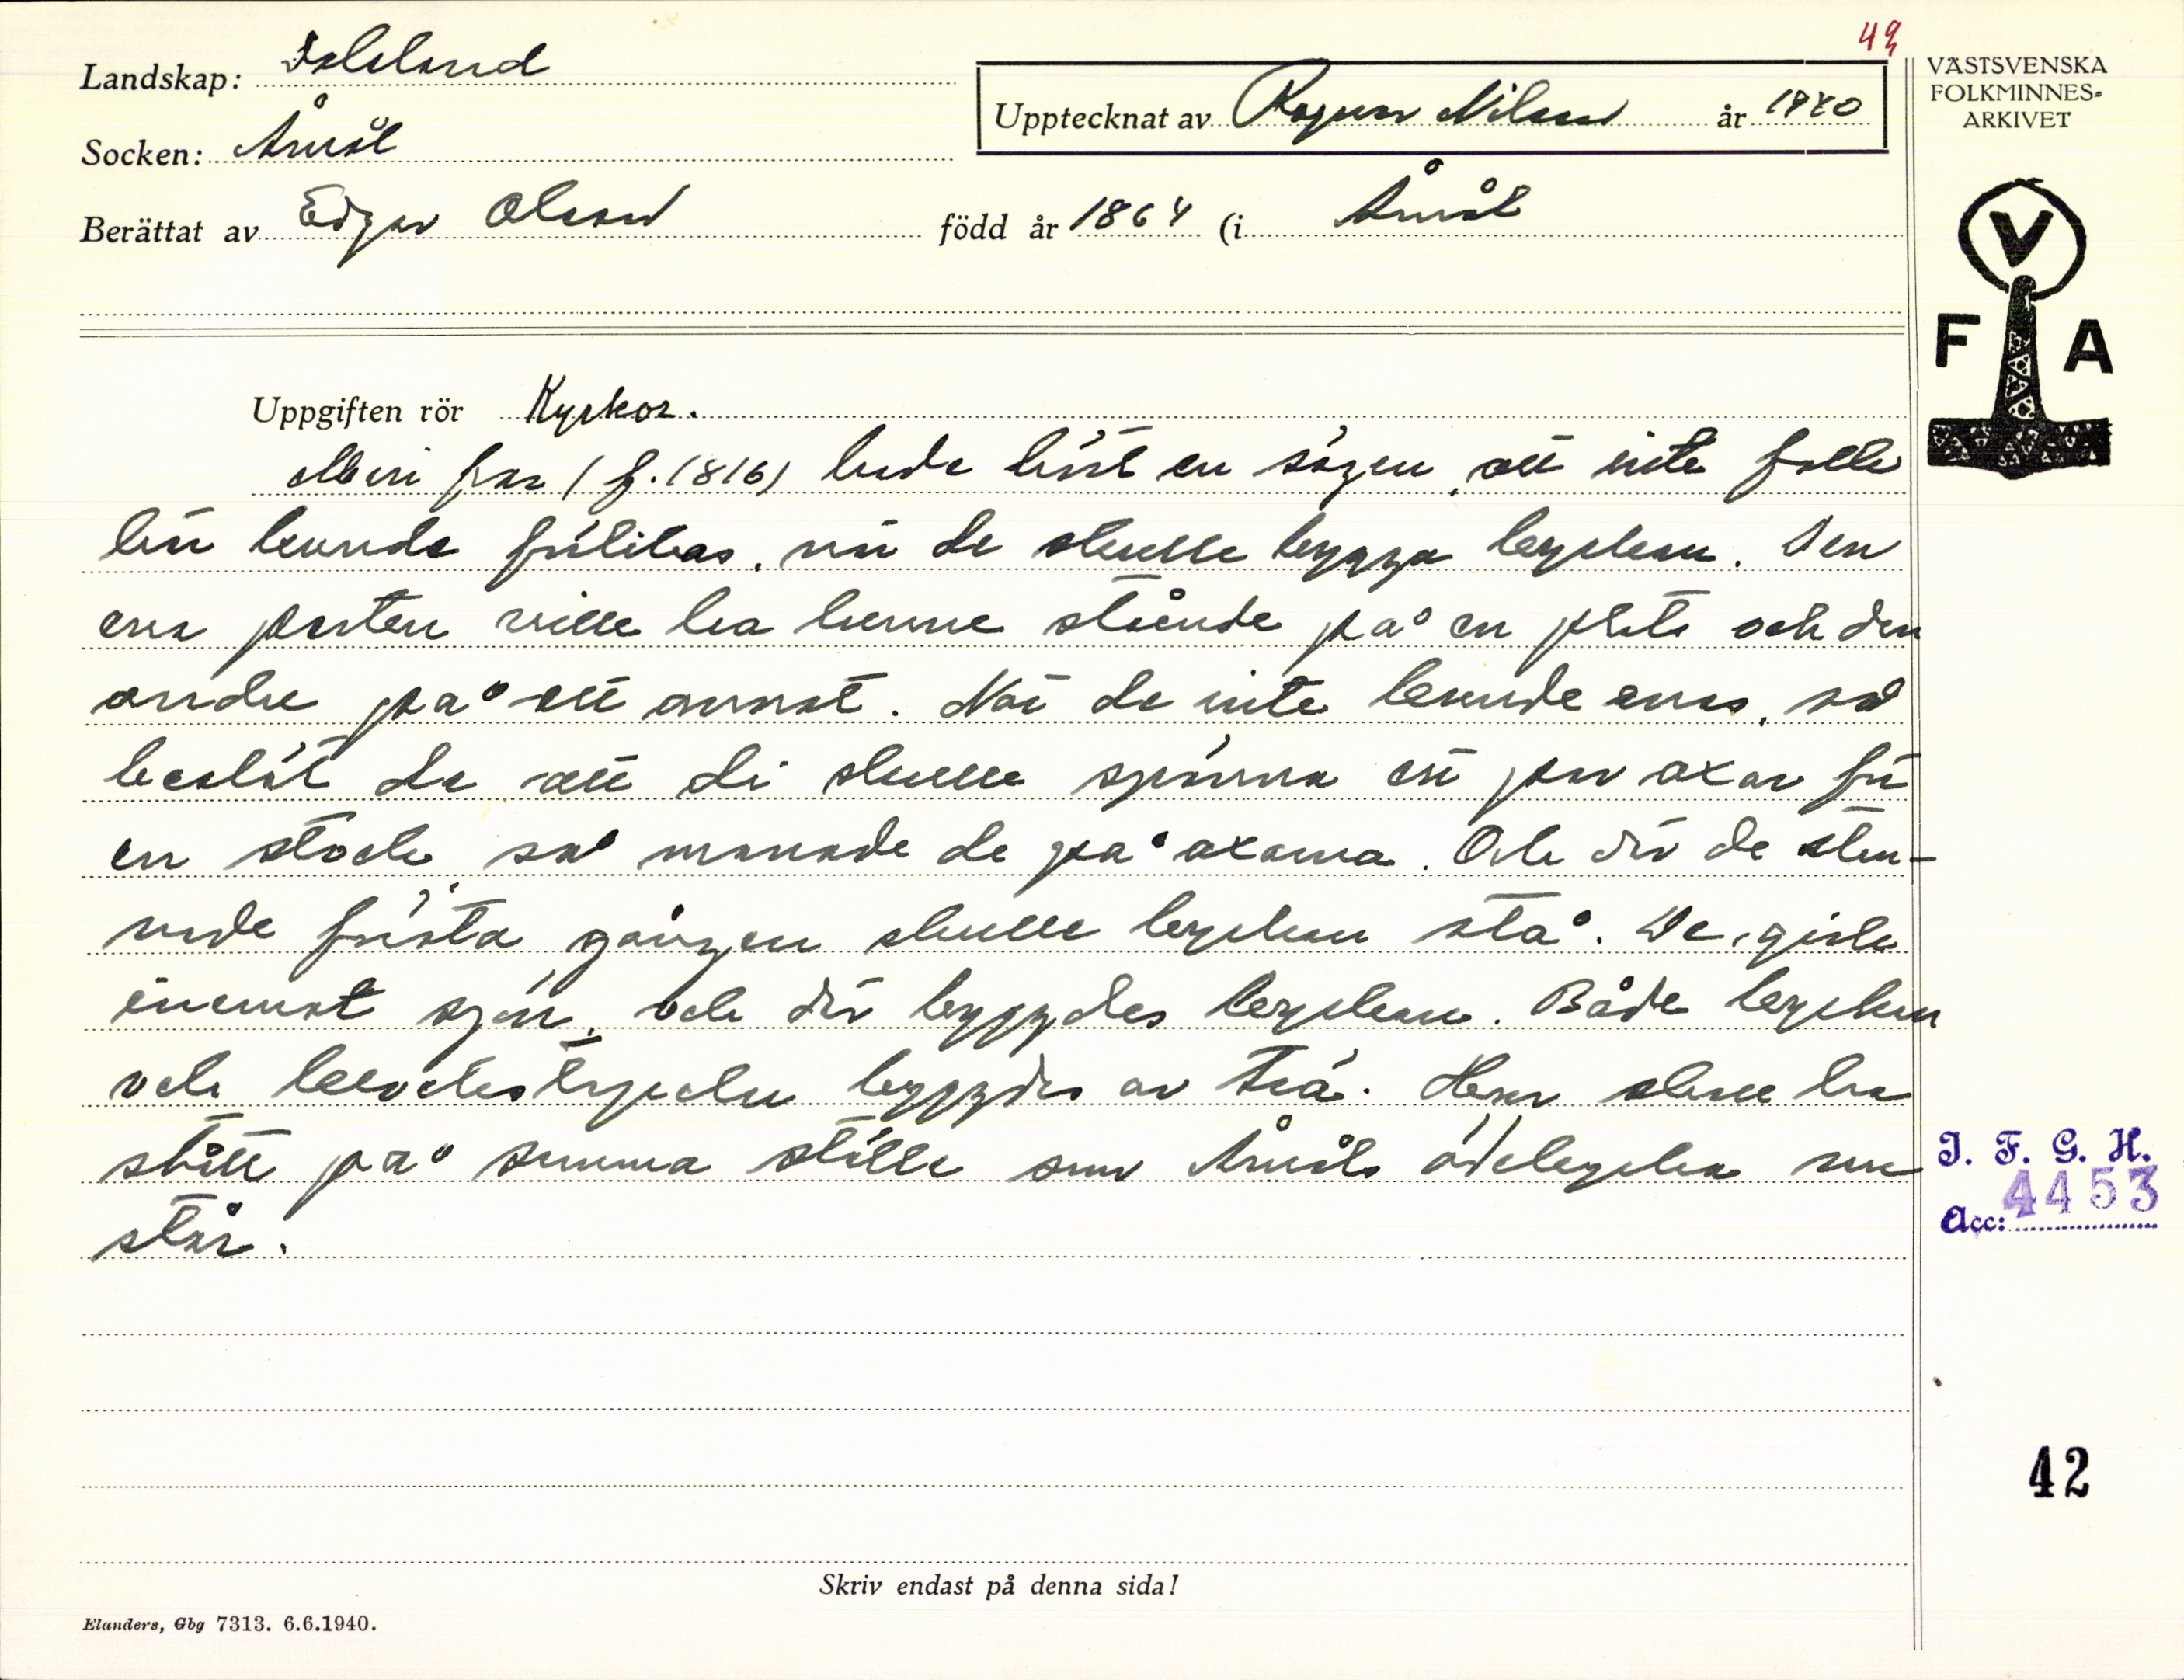 49
Landskap: Dalsland
Upptecknat av Ragnar Nilsson år 1940
Socken: Åmål
Berättat av Edgar Olsson född år 1864 (i Åmål
VÄSTSVENSKA
FOLKMINNES-
ARKIVET
V
F A
Uppgiften rör Kyrkor.
Meri far (f. 1816) hade hört en sägen, att inte folk
här kunde förlikas, när de skulle bygga kyrkan. Den
ena parten ville ha henne stående på en plats och den
andre på ett annat. När de inte kunde enas, så
beslöt de att di skulle spänna ett par oxar för
en stock så manade de på oxarna. Och där de stan-
nade första gången skulle kyrkan stå. De gick
inemot sjön, och där byggdes kyrkan. Både kyrkan
och klockstapeln byggdes av trä. Hon skulle ha
stått på samma ställe som Åmåls ödekyrka nu
står.
I. F. G. H.
Acc: 4453
42
Skriv endast på denna sida!
Elanders, Gbg 7313. 6.6.1940.